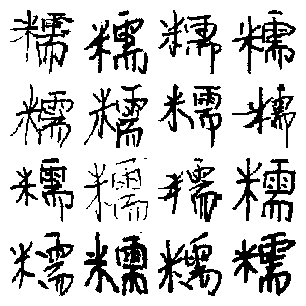 糯糯糯糯
糯糯糯糯
糯糯糯糯
糯糯糯糯